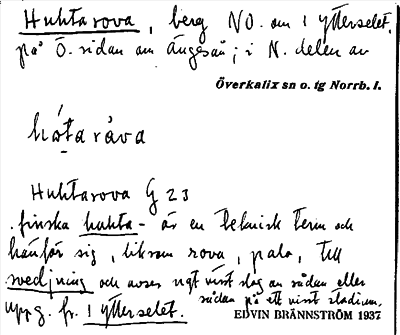 Huhtarova, berg NO. om 1 ytterselet,
på Ö. sidan om Ängesån; i N. delen av
Överkalix sn o. tg Norrb. l.
hòtaràva
Huhtarova G 23
finska huhta- är en teknisk term och
hänför sig, liksom rova, palo, till
svedjning och avser ngt visst slag av sådan eller
sådan på ett visst stadium.
uppg. fr. 1 ytterselet.
EDVIN BRÄNNSTRÖM 1937